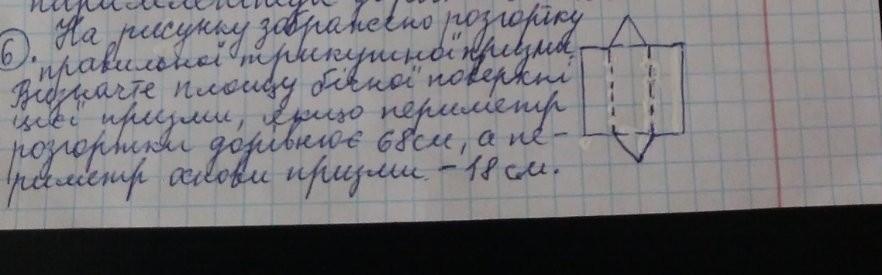 6. На рисунку зображено розгортку
правильної трикутної призми.
Визначте площу бічної поверхні
цієї призми, якщо периметр
розгортки дорівнює 68см, а пе-
риметр основи призми - 18 см.